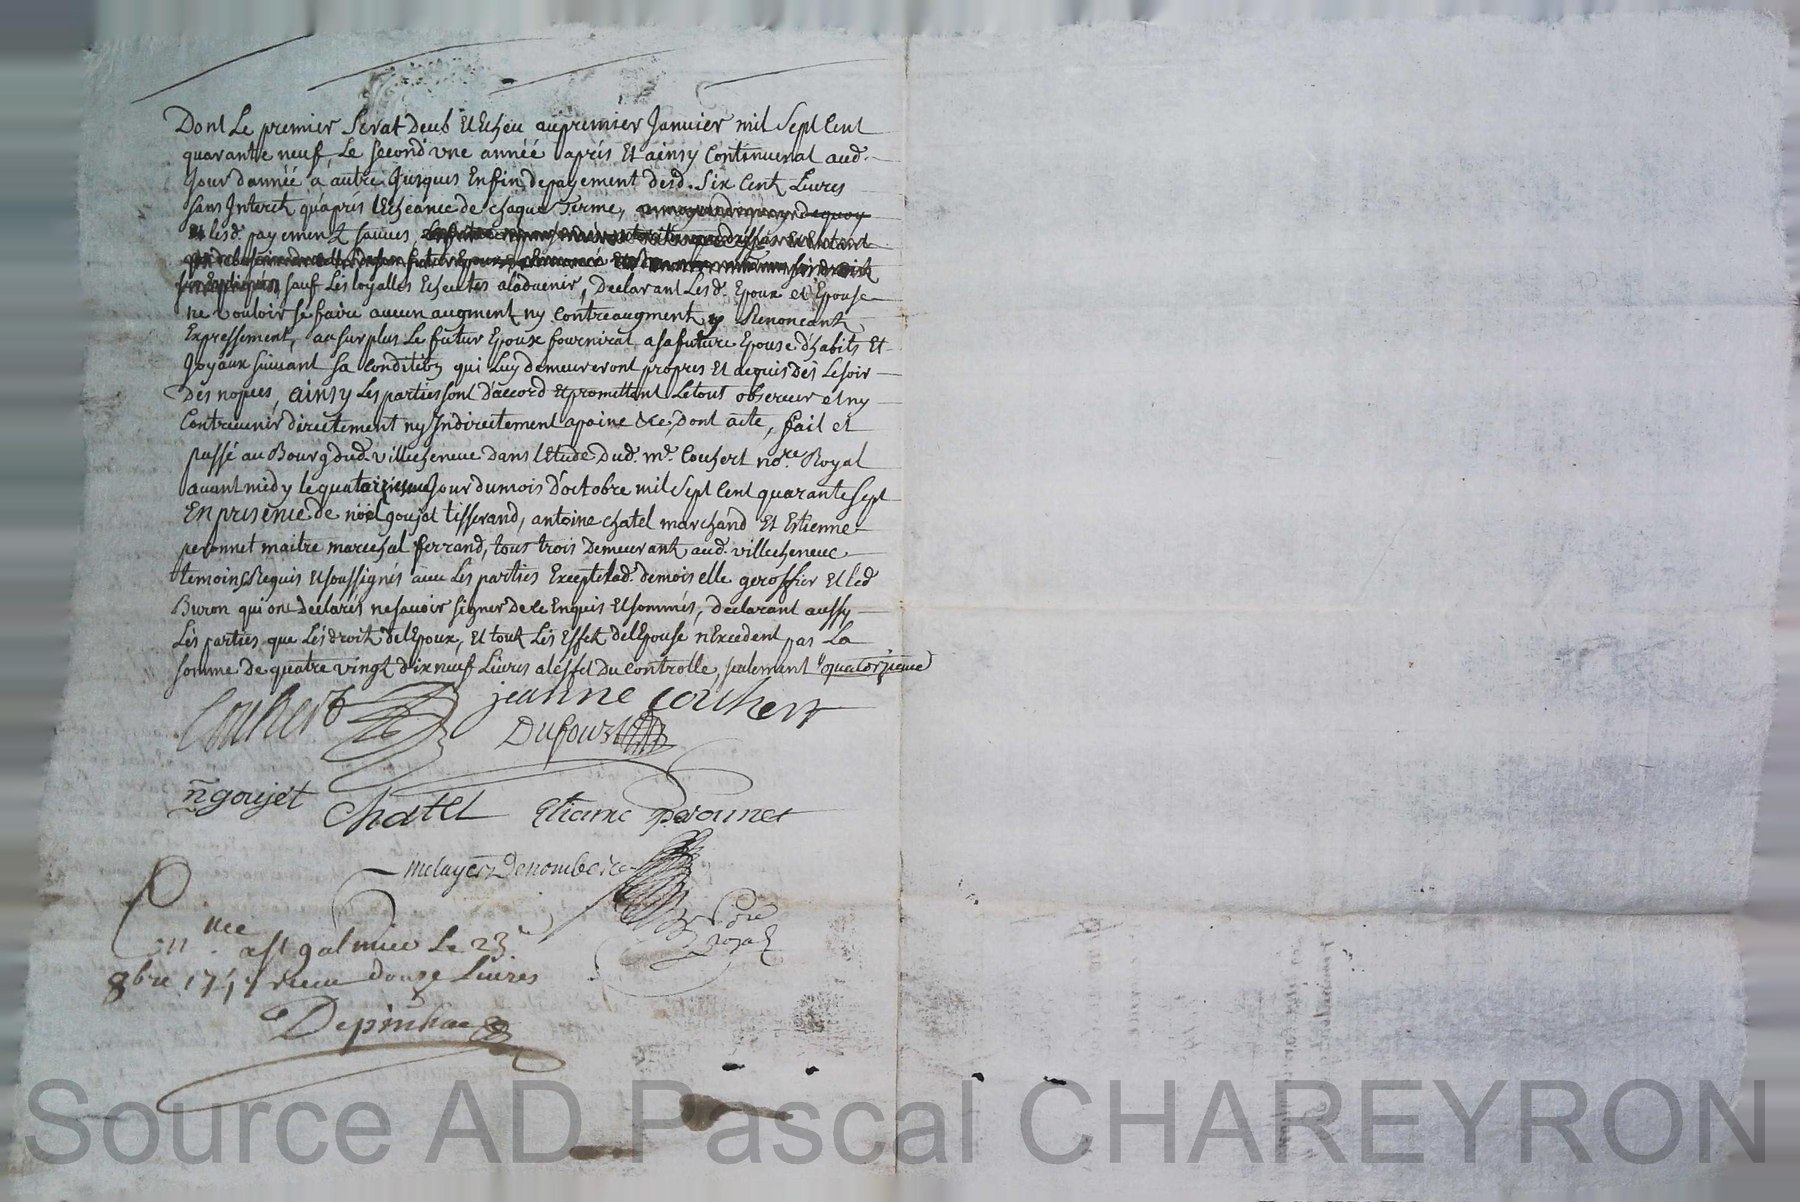 Dont Le premier Serat Deub Et Echeu au premier Janvier mil Sept Cent
quarante neuf, Le second vne année apris Et ainsy Continuerat aud.
Jour dannée a autre Jusques Enfin depayement desd. Six Cent Livres
sans Interet quapris lEcheance de chaque Terme,
lesd. payement sauves,
sauf Les loyalles Echeutes aladvenir, Declarant Lesd. Epoux et Epouse
ne vouloir se faire aucun augment ny Contreaugment y Renonceant
Expressement, au surplus Le futur Epoux fournirat a sa future Epouse d'habits Et
Joyaux suivant sa Condition qui Luy demeureront propres Et acquis Dès Lesoir
Des nopces, ainsy Les parties sont D'accord Et promettent Le tout observer et ny
Contrevenir directement ny Indirectement apaine &ce, Dont acte, fait et
passé au Bourg dud. villecheneve dans lEtude Dud. me. Couhert nore. Royal
avant midy le quatorzieme Jour du mois D'octobre mil Sept Cent quarante Sept
En presence de noël goujet tisserand, antoine chatel marchand Et Estienne
peronnet maitre marechal ferrand, tous trois Demeurant aud. villecheneve
temoins Requis Et soussignés avec Les parties Excepté lad. demoiselle geroffier Et led
Buron qui ont declarés ne savoir signer de ce Enquis Et sommés, declarant aussy
Lès parties que Lès droit de lEpoux, Et tout Lès Effet de lEpouse nExcedent pas La
somme de quatre vingt dix neuf Livres a lèffet Du Controlle, seulement quatorzieme
Couhert jeanne couhert
Dufour
n goujet chatel Etienne peronnet
nore
Royal
Con nce a st galmier Le 23
8bre 1747 receu douze Livres
Depinhac
Source AD Pascal CHAREYRON